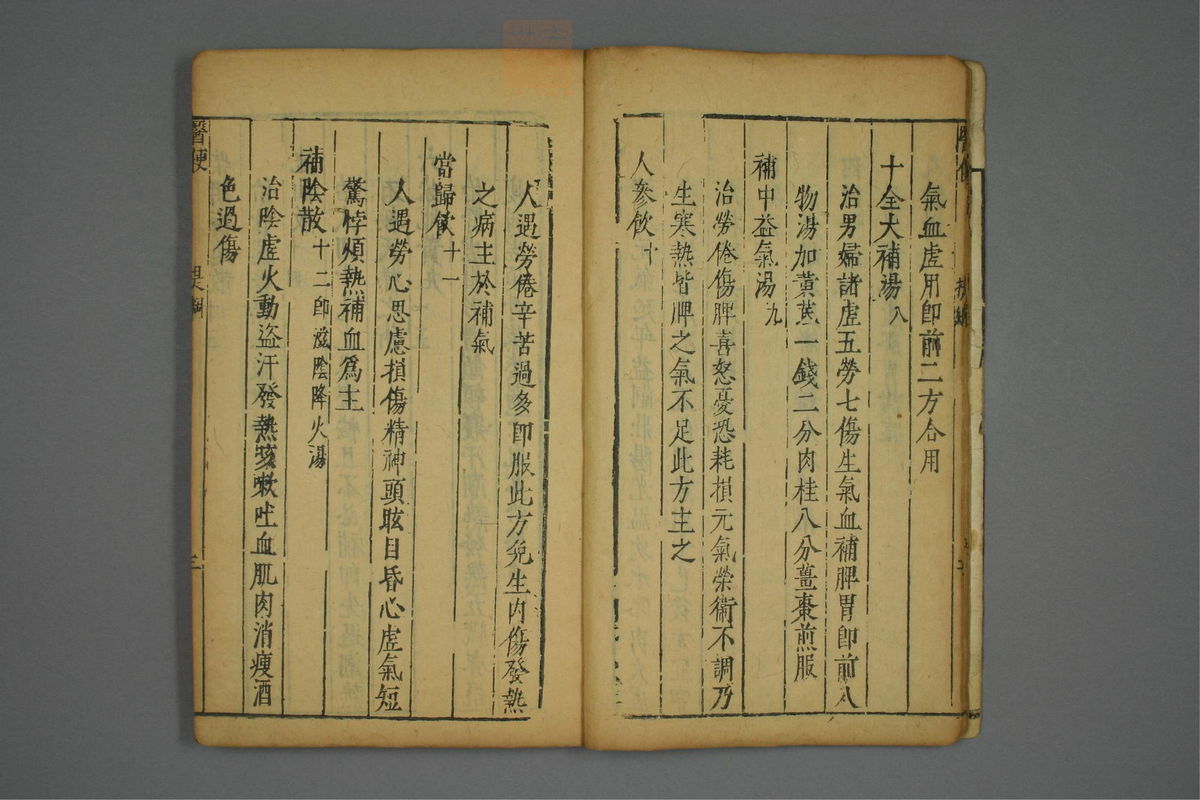 氣血虛用卽前二方合用
十全大補湯 八
治男婦諸虛五勞七傷生氣血補脾胃卽前八
物湯加黃蓍一錢二分肉桂八分薑棗煎服
補中益氣湯 九
治勞倦傷脾喜怒憂恐耗損元氣榮衞不調乃
生寒熱皆脾之氣不足此方主之
人參飲 十
人遇勞倦辛苦過多卽服此方免生內傷發熱
之病主於補氣
當歸飲 十一
人遇勞心思慮損傷精神頭眩目昏心虛氣短
驚悸煩熱補血爲主
補陰散 十二卽滋陰降火湯
治陰虛火動盜汗發熱咳嗽吐血肌肉消瘦酒
色過傷
醫便
提綱
三